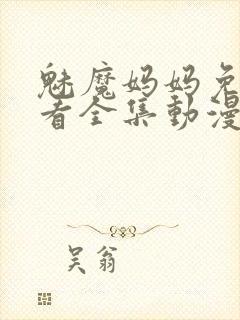 魅魔妈妈免
看全集動漫
吴翁